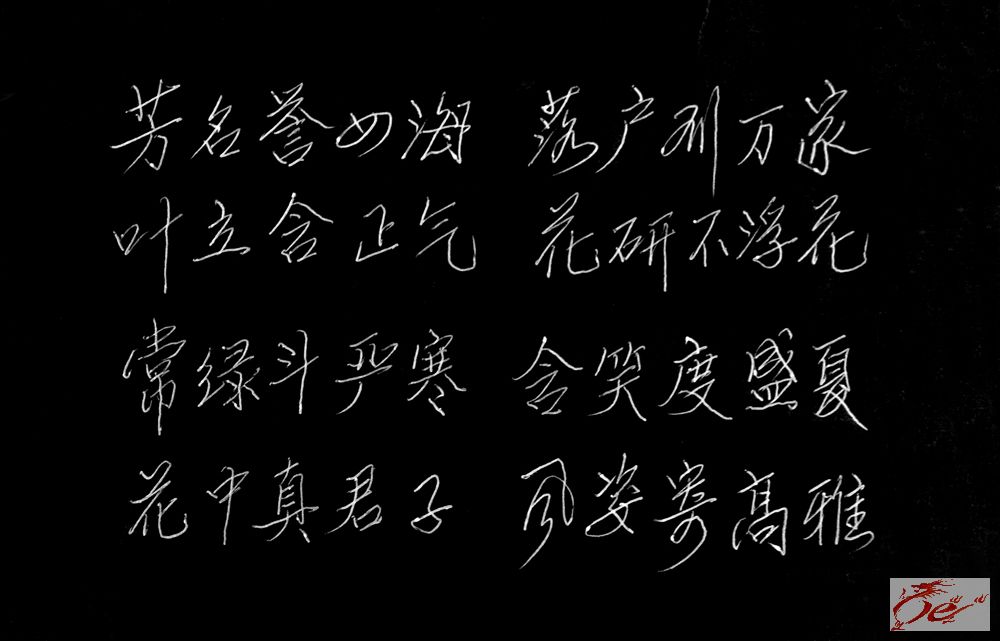 芳名誉四海 落户到万家
叶立含正气 花研不浮花
常绿斗严寒 含笑度盛夏
花中真君子 风姿寄高雅